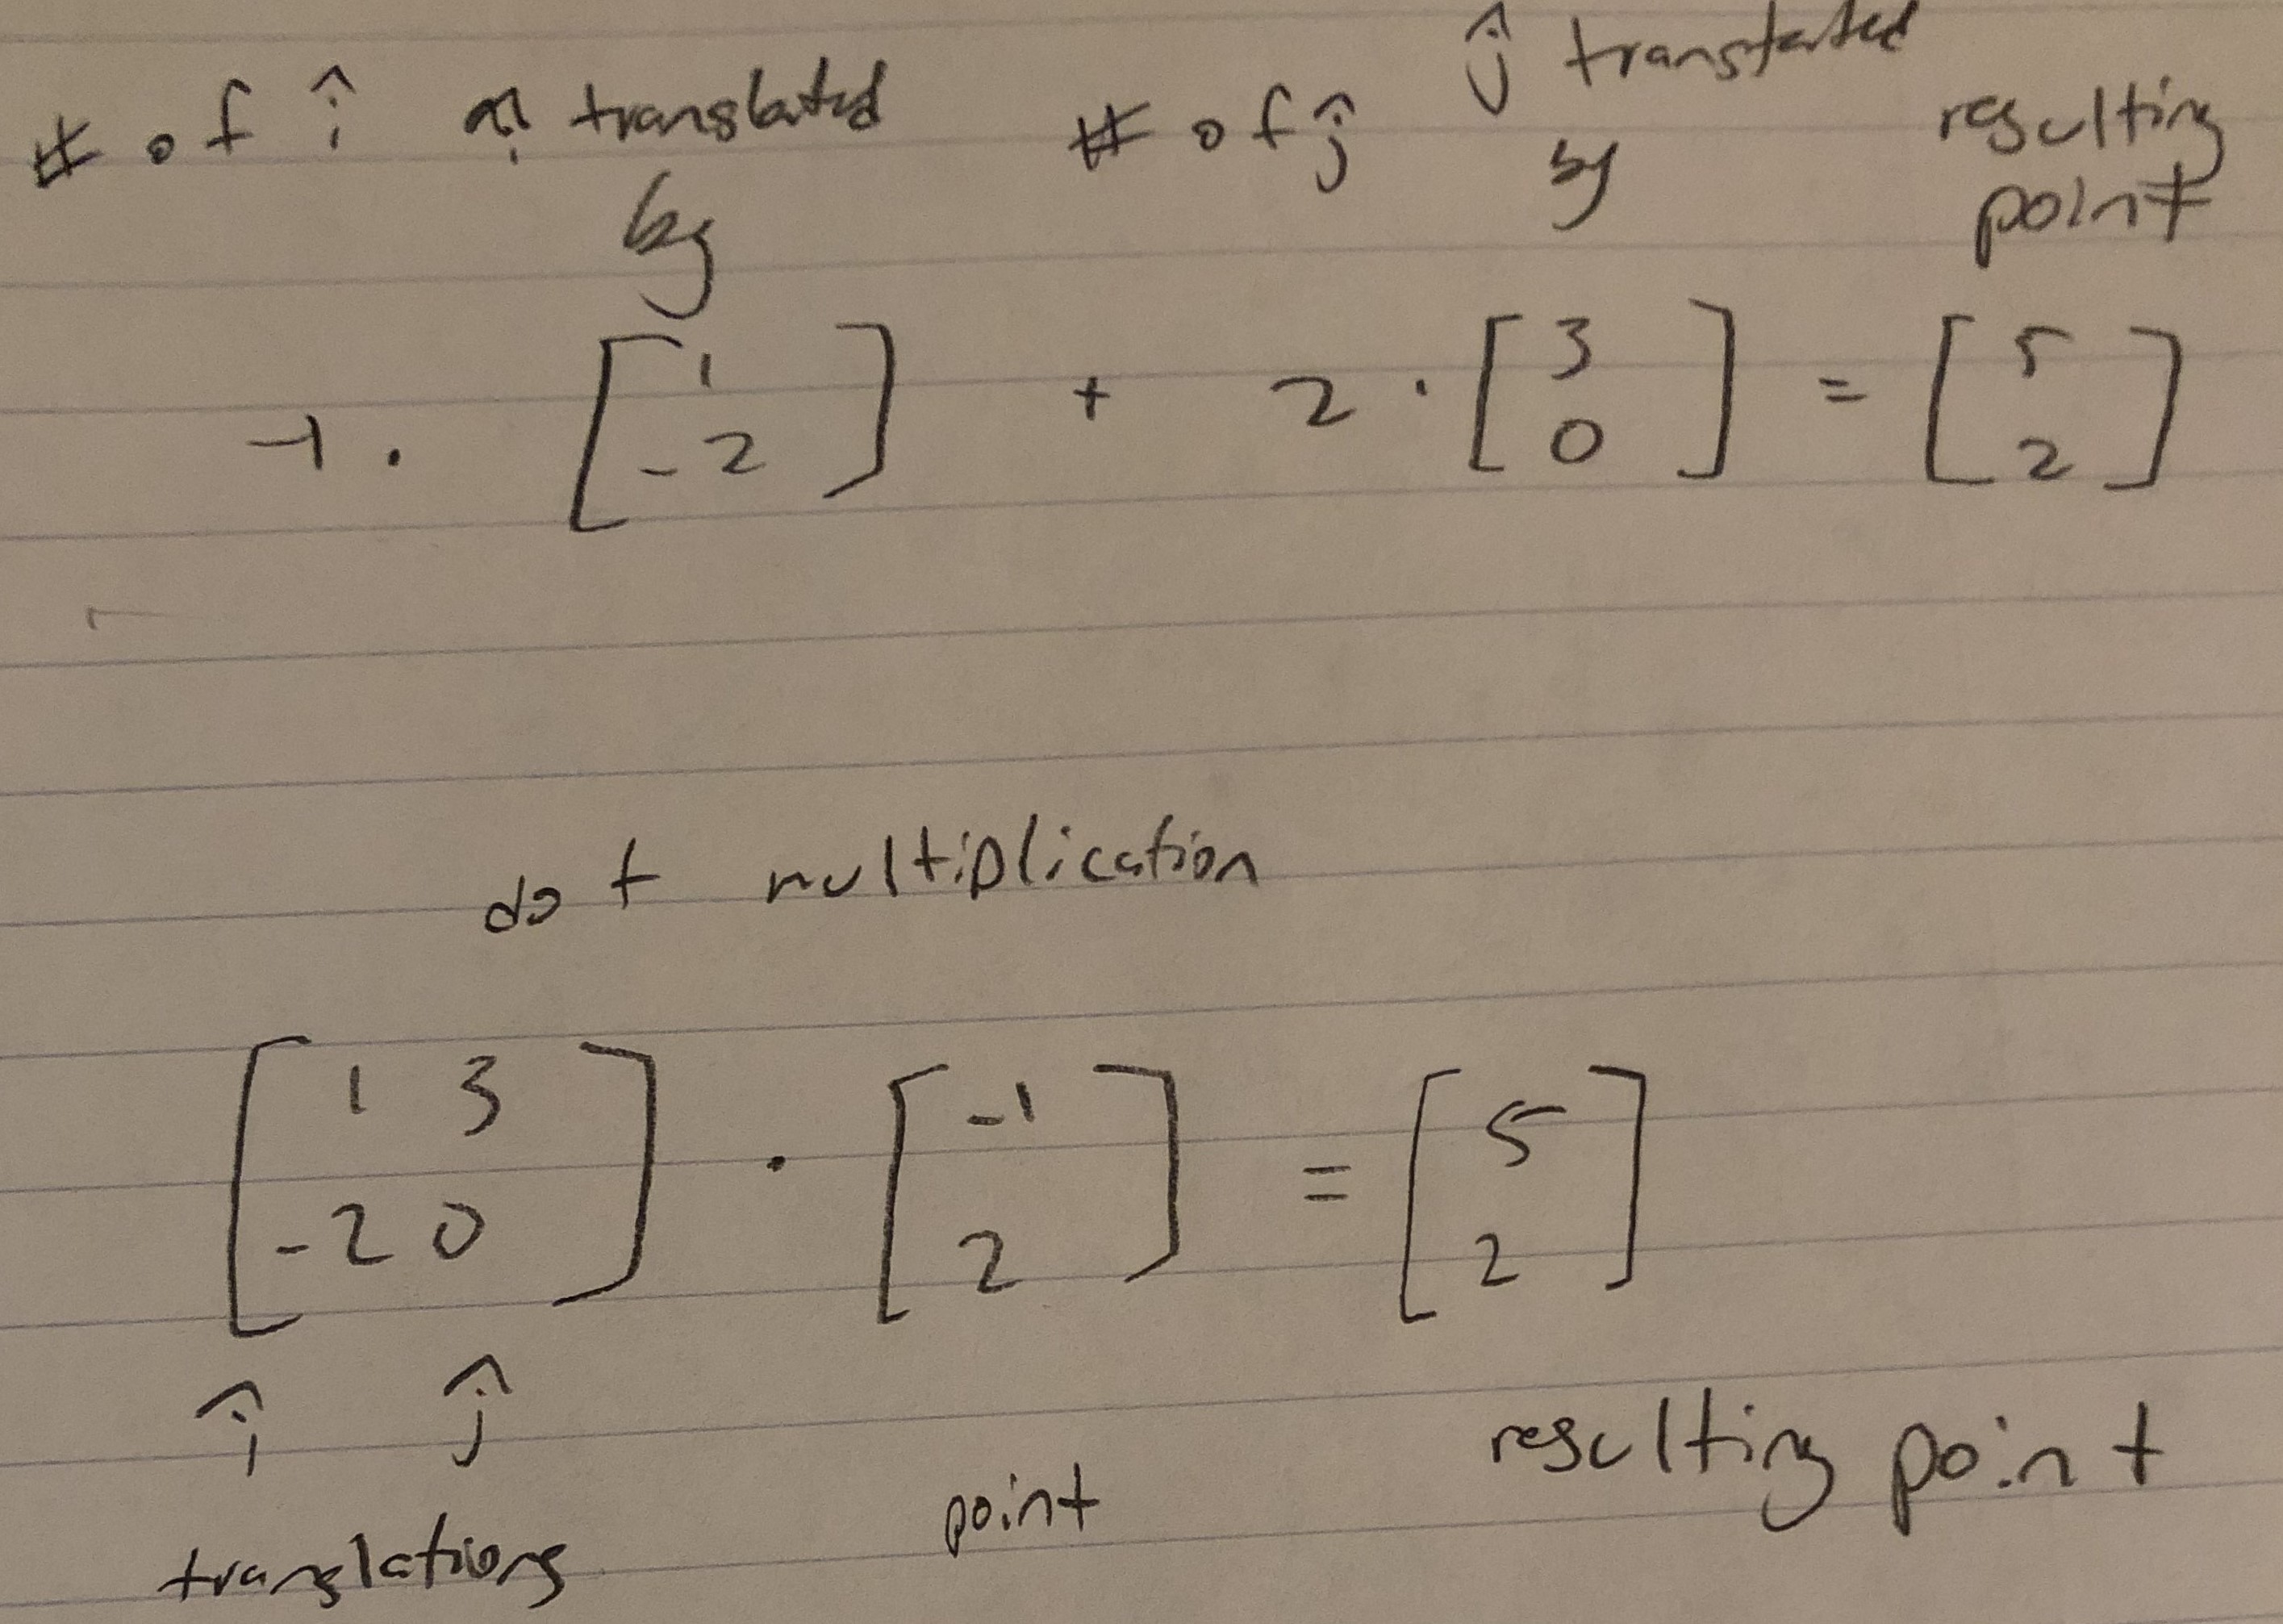 # of î î translated # of ĵ ĵ translated resulting
by by point
-1 · [1 -2] + 2 · [3 0] = [5 2]
dot multiplication
[1 3 -2 0] · [-1 2] = [5 2]
î ĵ
translations point resulting point